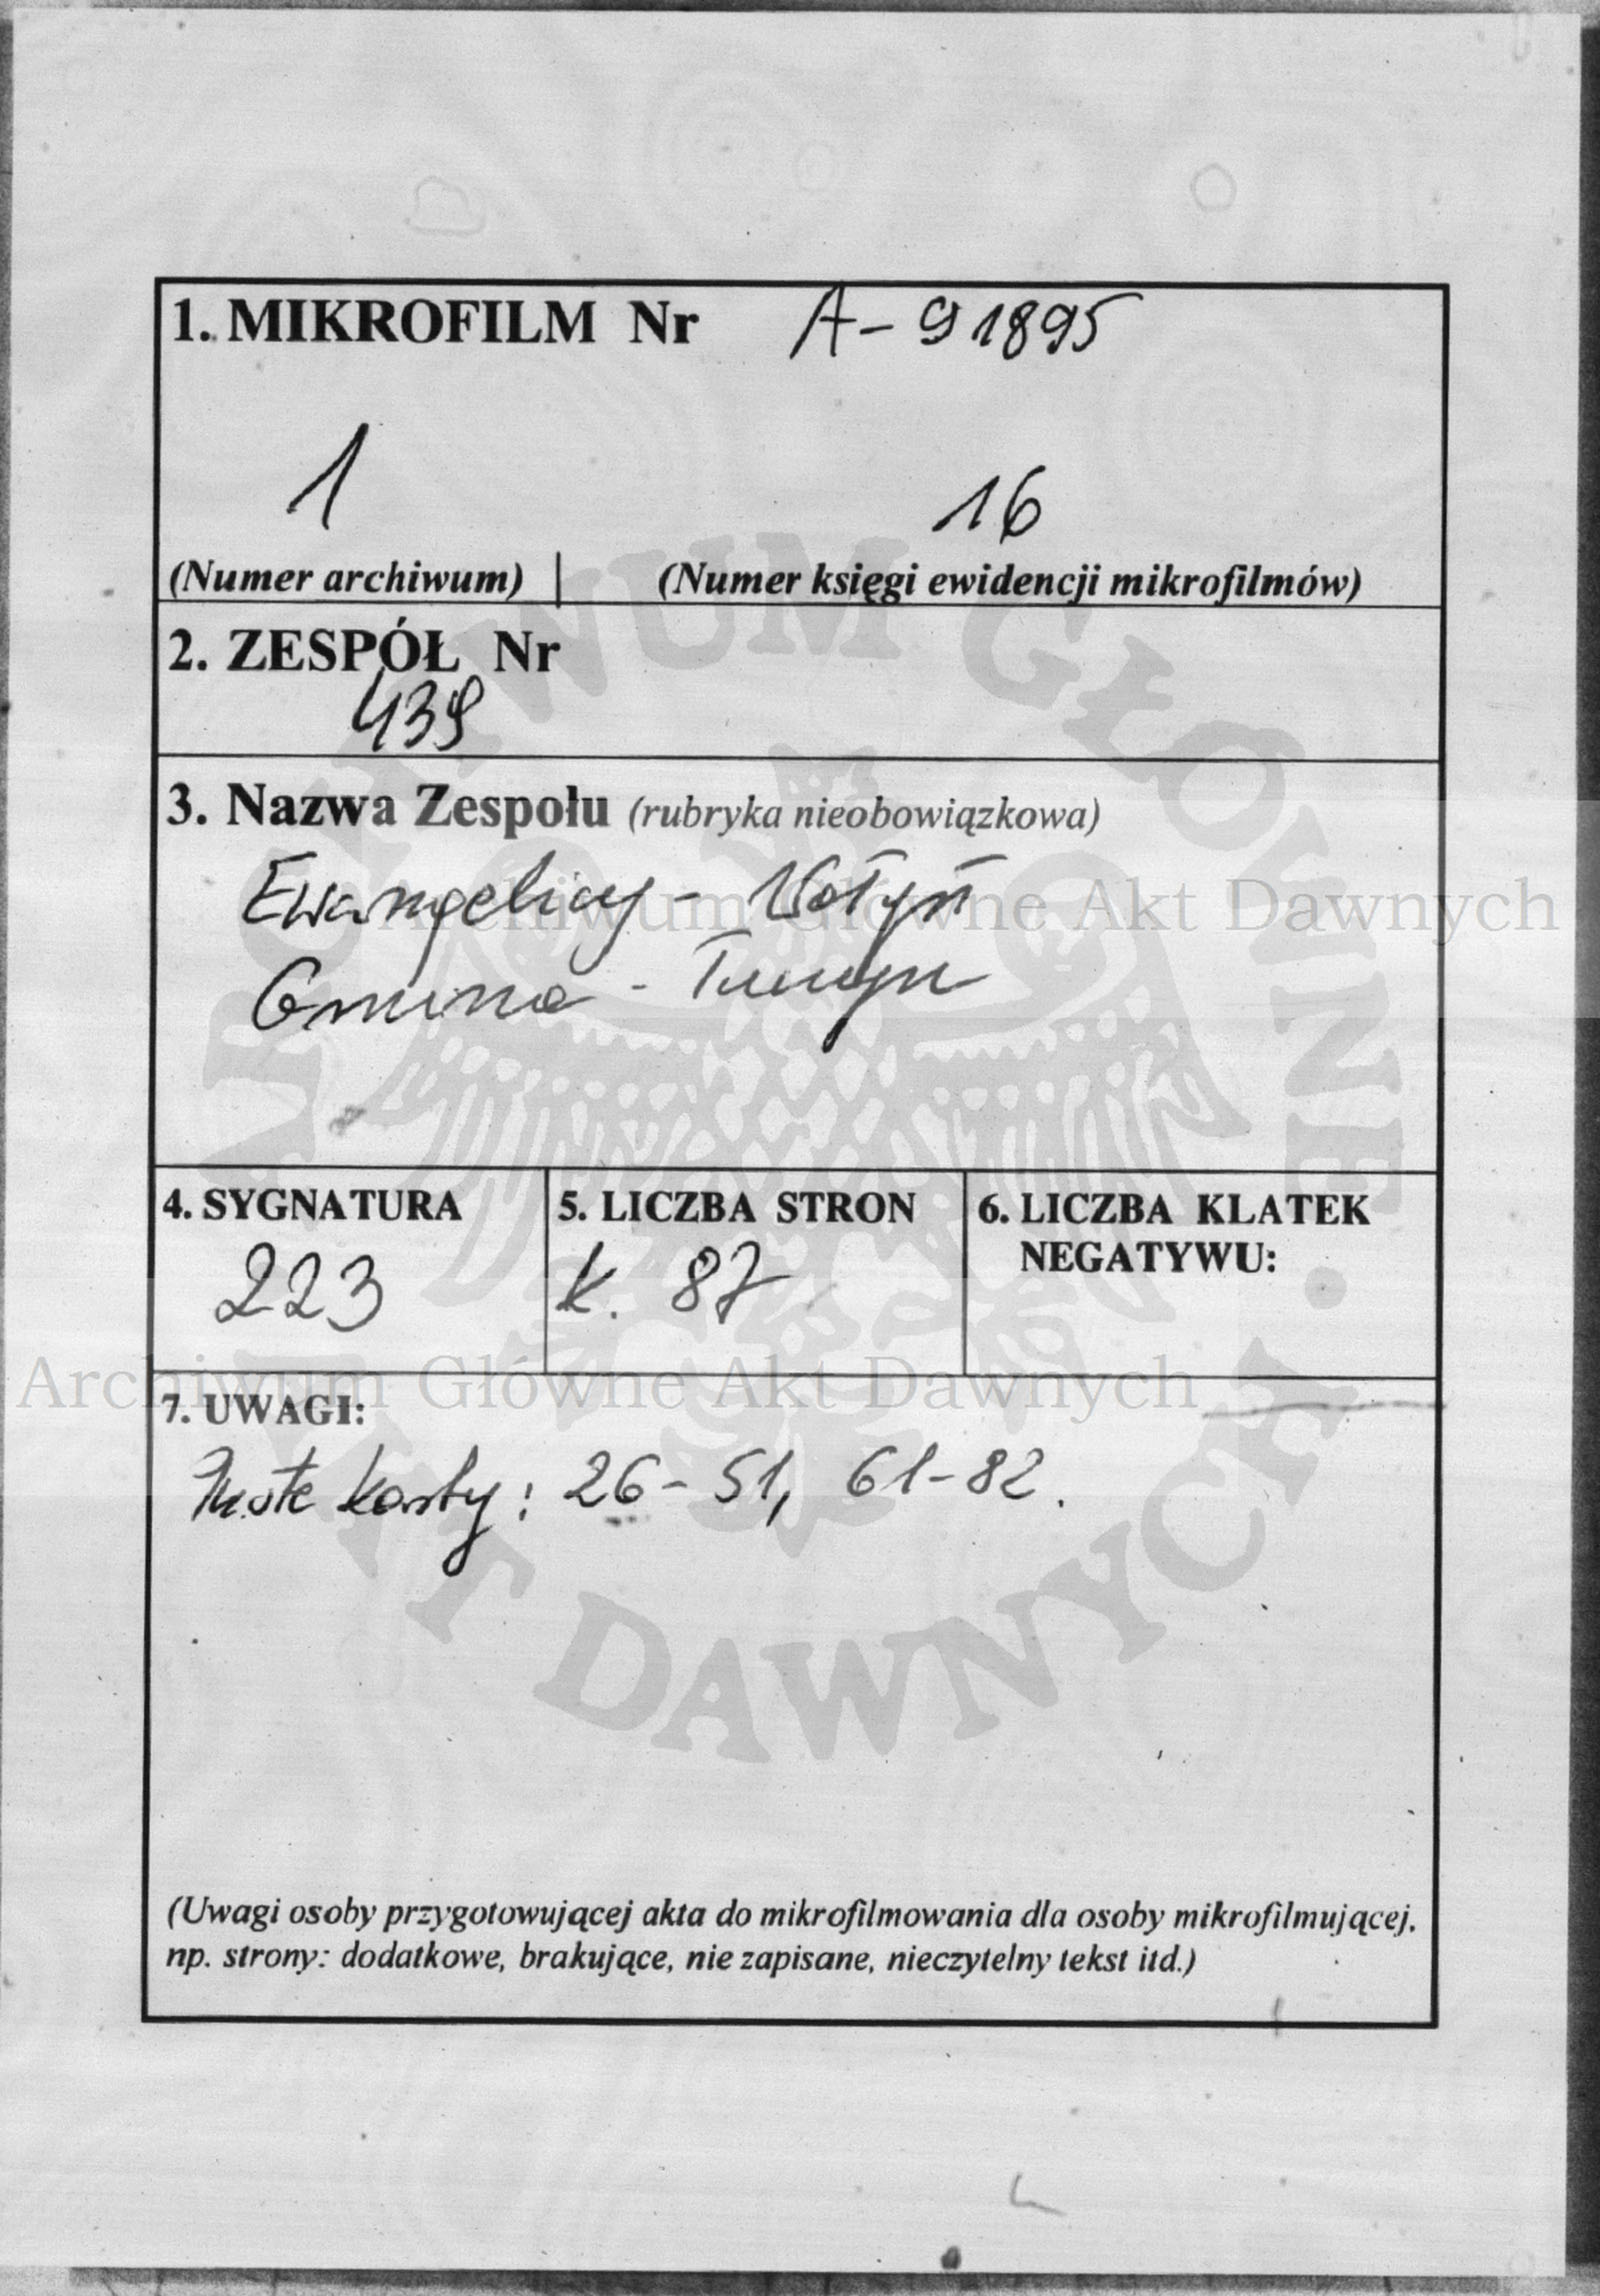 1. MIKROFILM Nr A-91895
1 16
(Numer archiwum) (Numer księgi ewidencji mikrofilmów)
2. ZESPÓŁ Nr
439
3. Nazwa Zespołu (rubryka nieobowiązkowa)
Ewangelicy - Wołyń
Gmina - Tuczyn
4. SYGNATURA 5. LICZBA STRON 6. LICZBA KLATEK NEGATYWU:
223 k. 87
7. UWAGI:
Puste karty: 26-51, 61-82.
(Uwagi osoby przygotowującej akta do mikrofilmowania dla osoby mikrofilmującej,
np. strony: dodatkowe, brakujące, nie zapisane, nieczytelny tekst itd.)
Archiwum Główne Akt Dawnych
Archiwum Główne Akt Dawnych
ARCHIWUM GŁÓWNE AKT DAWNYCH